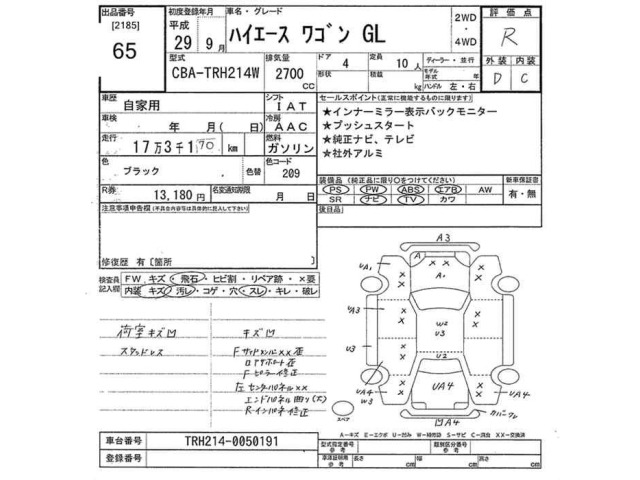 出品番号
[2185]
65
初度登録年月
平成
29年9月
車名・グレード
ハイエース ワゴン GL
2WD
・
4WD
評価点
R
外装 内装
D C
型式
CBA-TRH214W
排気量
2700
cc
ドア
4
形状
定員
10 人
積載
kg
ディーラー・並行
モデル年式 年
ハンドル 左・右
車歴
自家用
シフト
IAT
車検
年 月(日)
冷房
AAC
走行
17万3千170 km
燃料
ガソリン
色
ブラック
色替
色コード
209
R券
13,180 円
名変通知期限
月 日
セールスポイント(正常に機能するものに限ります)
★インナーミラー表示バックモニター
★プッシュスタート
★純正ナビ、テレビ
★社外アルミ
装備品(純正品に限り○をつけてください)
PS PW ABS エアB AW
SR ナビ TV カワ
新車保証書
有・無
後日品
注意事項申告欄(不具合内容等は具体的に記入して下さい)
修復歴 有〔箇所 〕
検査員記入欄
FW キズ・飛石・ヒビ割・リペア跡・×要
内装 キズ・汚レ・コゲ・穴・スレ・キレ・破レ
荷室キズ凹
スタッドレス
キズ凹
Fサッドメンバ××歪
ロアサポート歪
Fピラー修正
左センタパネル××
エンドパネル曲り(大)
Rインパネ修正
A3
A
A1
UA1
UA3
U3
UA4
W3
W2
U3
U2
UA4
A1
A3
UA4
凹A4
スペア
A－キズ E－エクボ U－凹み W－補修跡 S－サビ C－腐食 ××－交換済
車台番号
TRH214-0050191
登録番号
型式指定番号
参考
類別区分番号
参考
車体証明用
参考
長さ cm
幅 cm
高さ cm